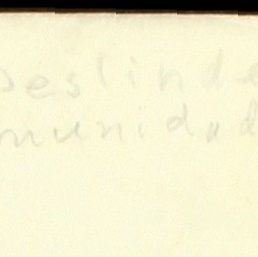 deslinde
munidad